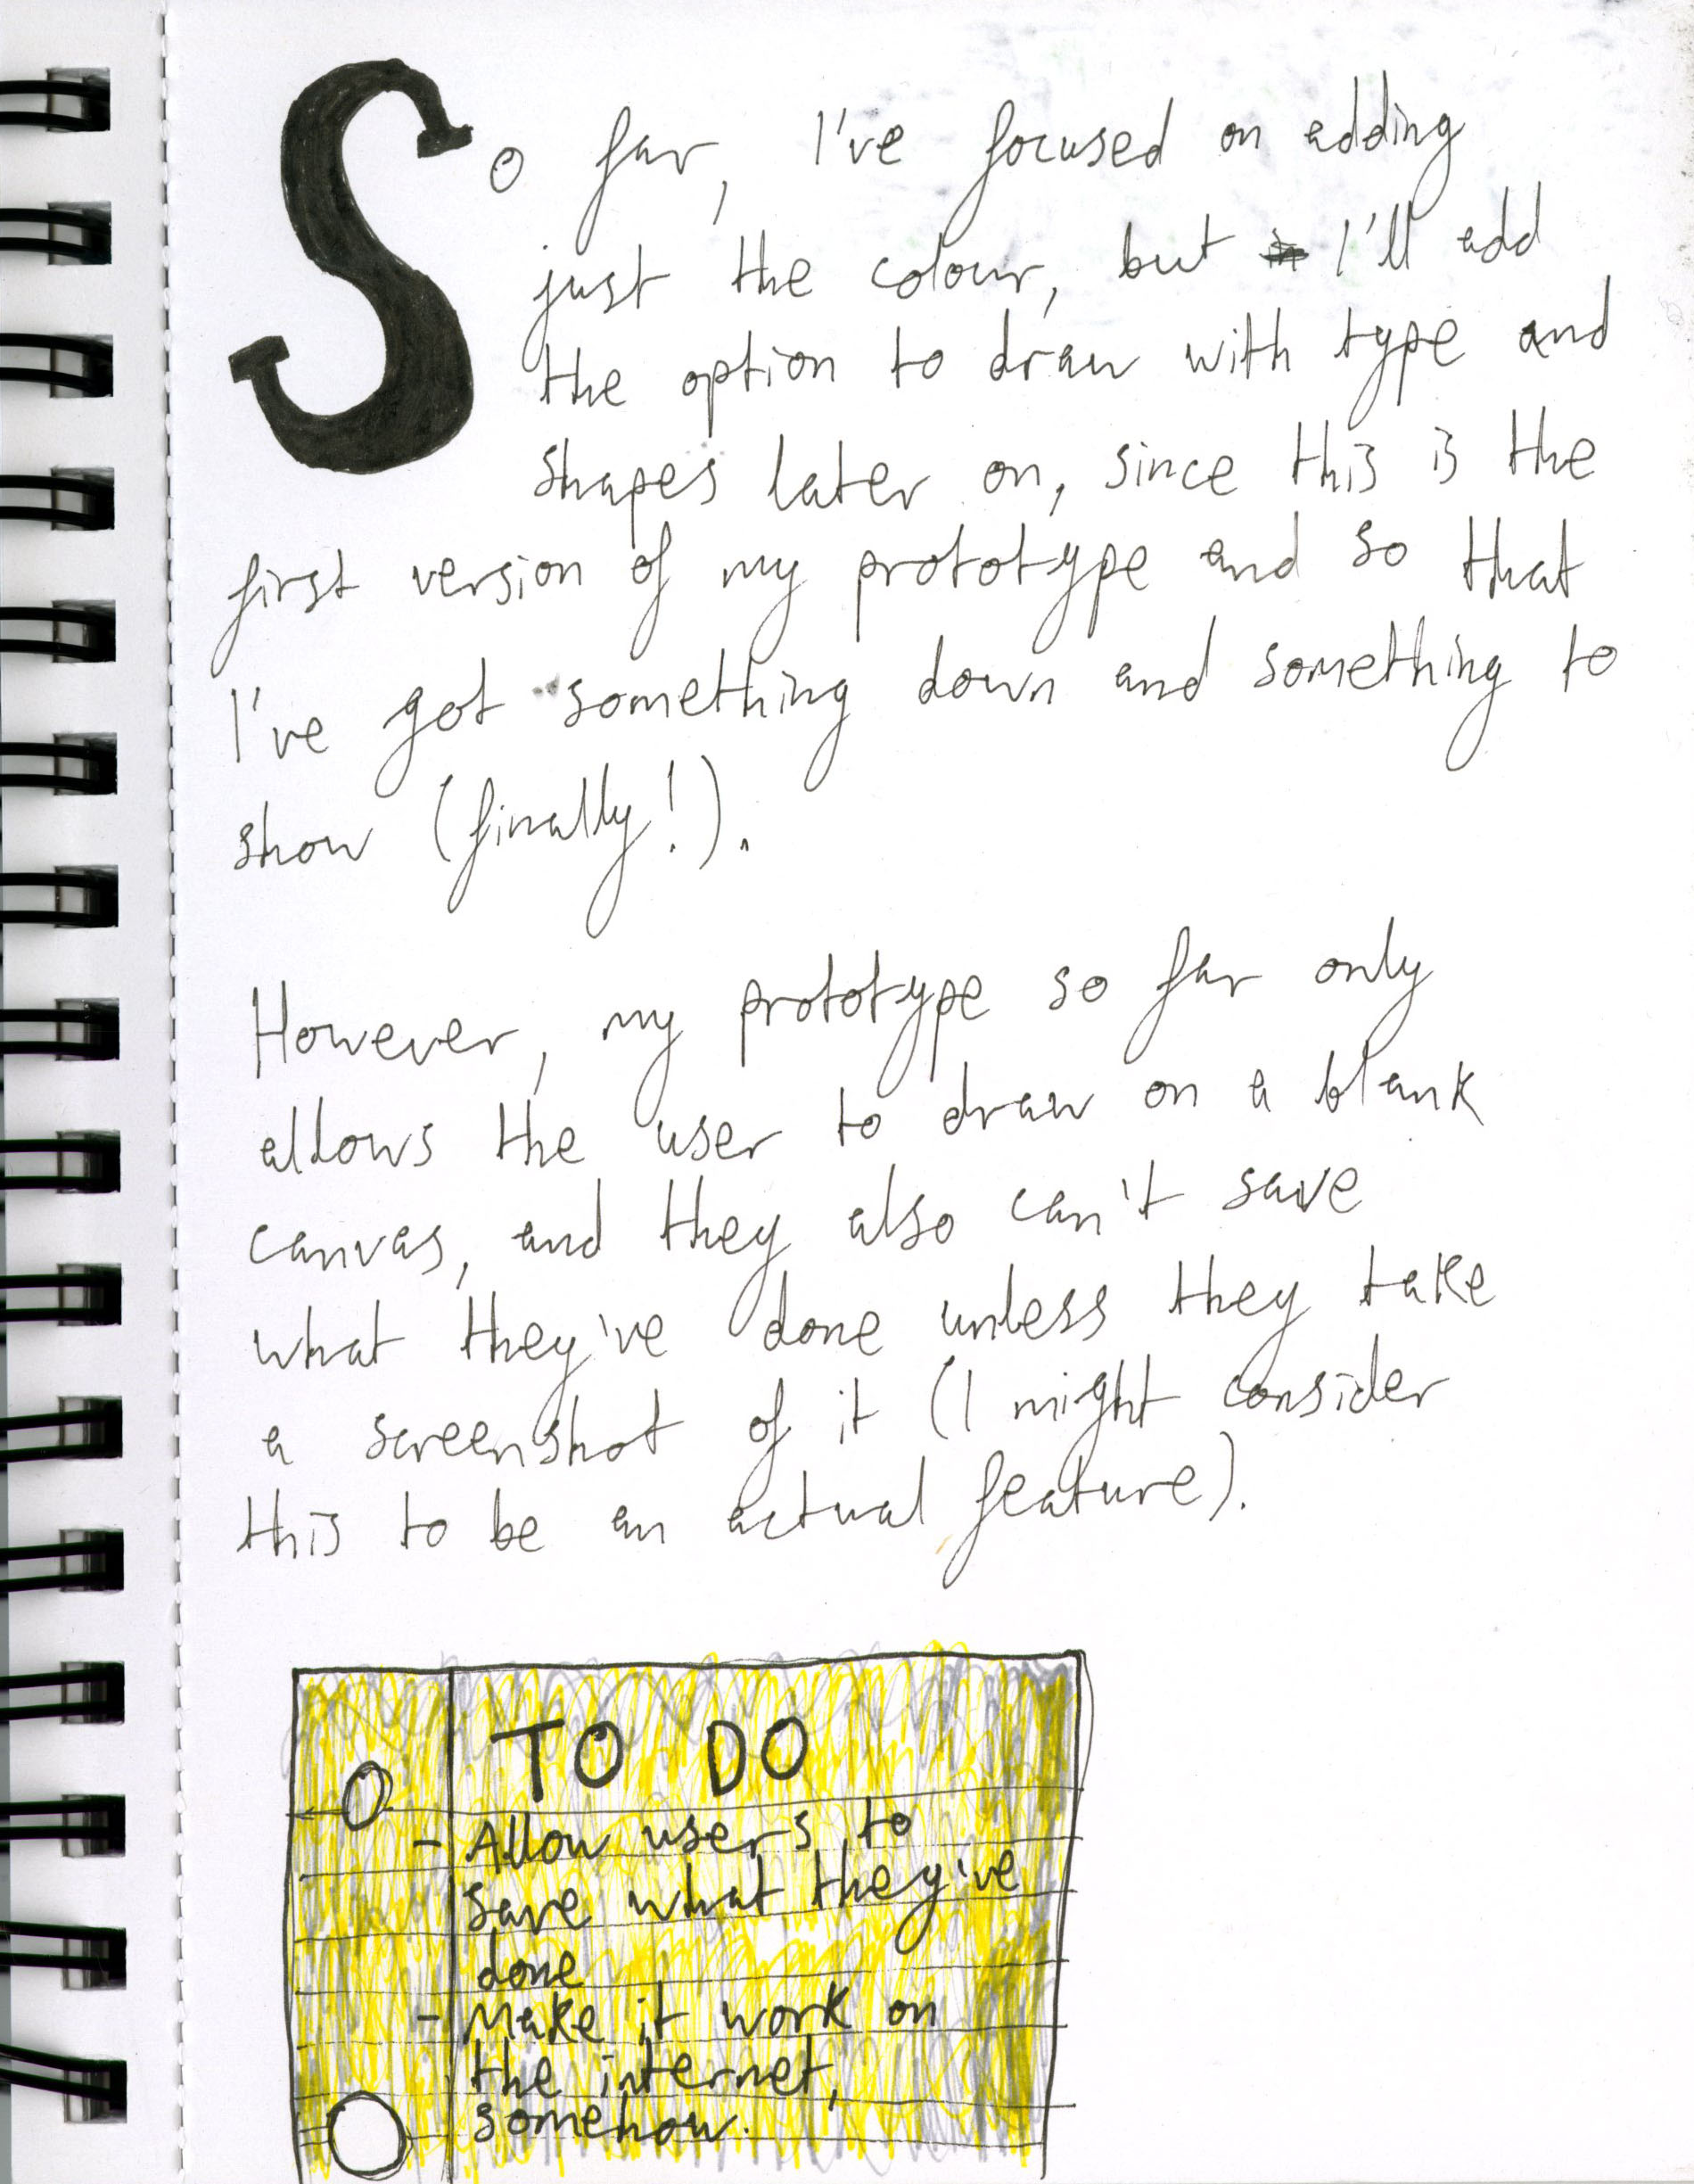 So far, I've focused on adding
just the colour, but I'll add
the option to draw with type and
shapes later on, since this is the
first version of my prototype and so that
I've got something down and something to
show (finally!).
However, my prototype so far only
allows the user to draw on a blank
canvas, and they also can't save
what they've done unless they take
a screenshot of it (I might consider
this to be an actual feature).
TO DO
- Allow users to
save what they've
done
- Make it work on
the internet,
somehow.